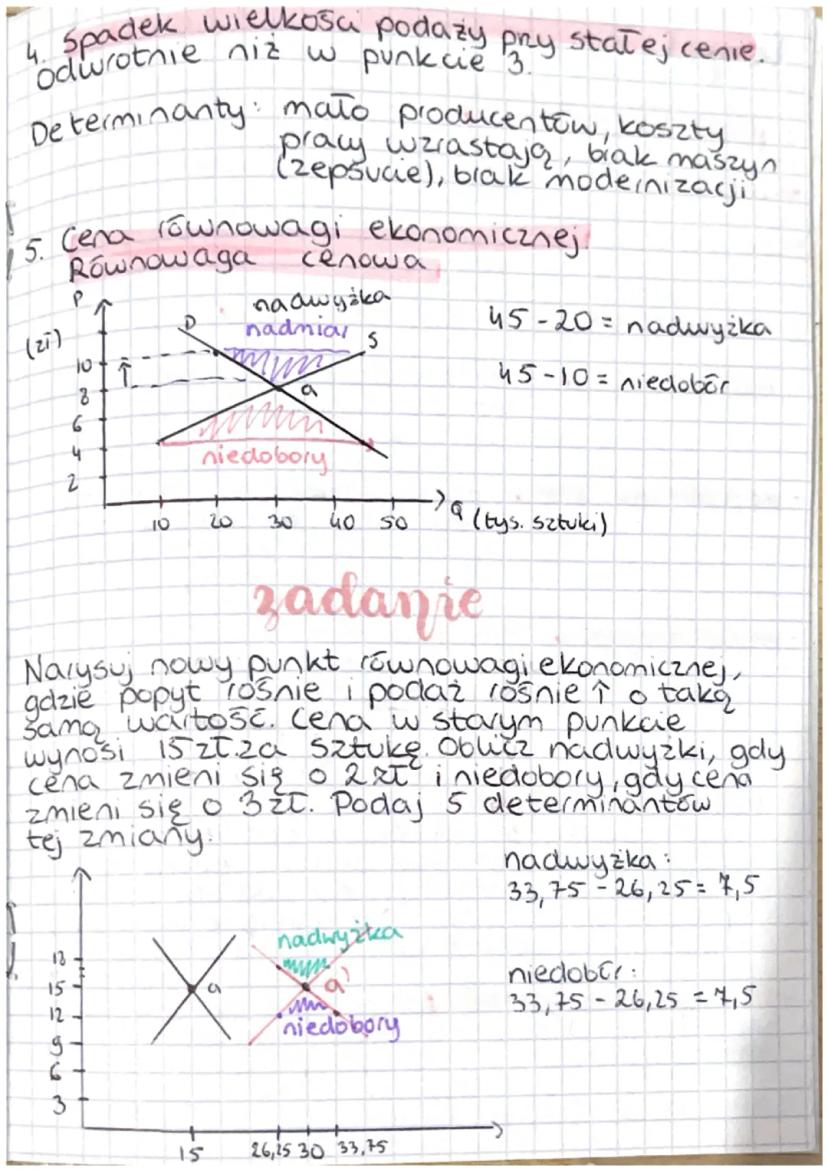 4. Spadek wielkości podaży przy stałej cenie.
Odwrotnie niż w punkcie 3.
Determinanty: mało producentów, koszty
pracy wzrastają, brak maszyn
(zepsucie), brak modernizacji
5. Cena równowagi ekonomicznej
Równowaga cenowa
P
(zł)
nadwyżka
nadmiar
D
S
a
niedobory
10
8
6
4
2
10 20 30 40 50
Q (tys. sztuki)
45-20 = nadwyżka
45-10 = niedobór
zadanie
Narysuj nowy punkt równowagi ekonomicznej,
gdzie popyt rośnie i podaż rośnie ↑ o taką
samą wartość. Cena w starym punkcie
wynosi 15 zł za sztukę. Oblicz nadwyżki, gdy
cena zmieni się o 2 zł i niedobory, gdy cena
zmieni się o 3 zł. Podaj 5 determinantów
tej zmiany.
nadwyżka:
33,75 - 26,25 = 7,5
niedobór:
33,75 - 26,25 = 7,5
nadwyżka
a
a'
niedobory
15
12
9
6
3
15 26,25 30 33,75